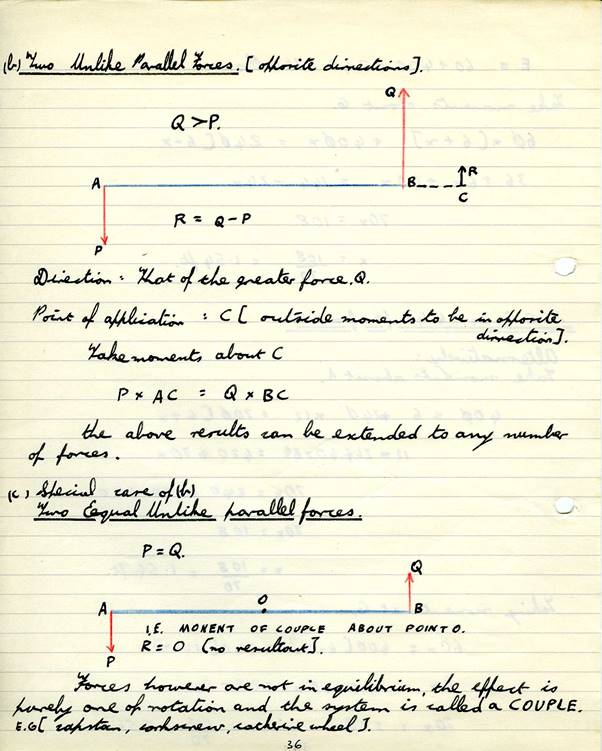 (b) Two Unlike Parallel Forces. [opposite directions].
Q
Q > P.
A B C R
R = Q - P
P
Direction : That of the greater force. Q.
Point of application : C [ outside moments to be in opposite
direction].
Take moments about C
P × AC = Q × BC
the above results can be extended to any number
of forces.
(c) Special case of (b)
Two Eequal Unlike parallel forces.
P = Q.
Q
A O B
I.E. MOMENT OF COUPLE ABOUT POINT O.
R = O (no resultant].
P
Forces however are not in equilibrium, the effect is
purely one of rotation and the system is called a COUPLE.
E.G [ capstan, corkscrew, catherine wheel ].
36